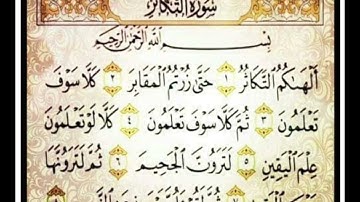 سُورَةُ التَّكَاثُرِ
بِسْمِ اللَّهِ الرَّحْمَٰنِ الرَّحِيمِ
أَلْهَاكُمُ التَّكَاثُرُ ١ حَتَّىٰ زُرْتُمُ الْمَقَابِرَ ٢ كَلَّا سَوْفَ
تَعْلَمُونَ ٣ ثُمَّ كَلَّا سَوْفَ تَعْلَمُونَ ٤ كَلَّا لَوْ تَعْلَمُونَ
عِلْمَ الْيَقِينِ ٥ لَتَرَوُنَّ الْجَحِيمَ ٦ ثُمَّ لَتَرَوُنَّهَا